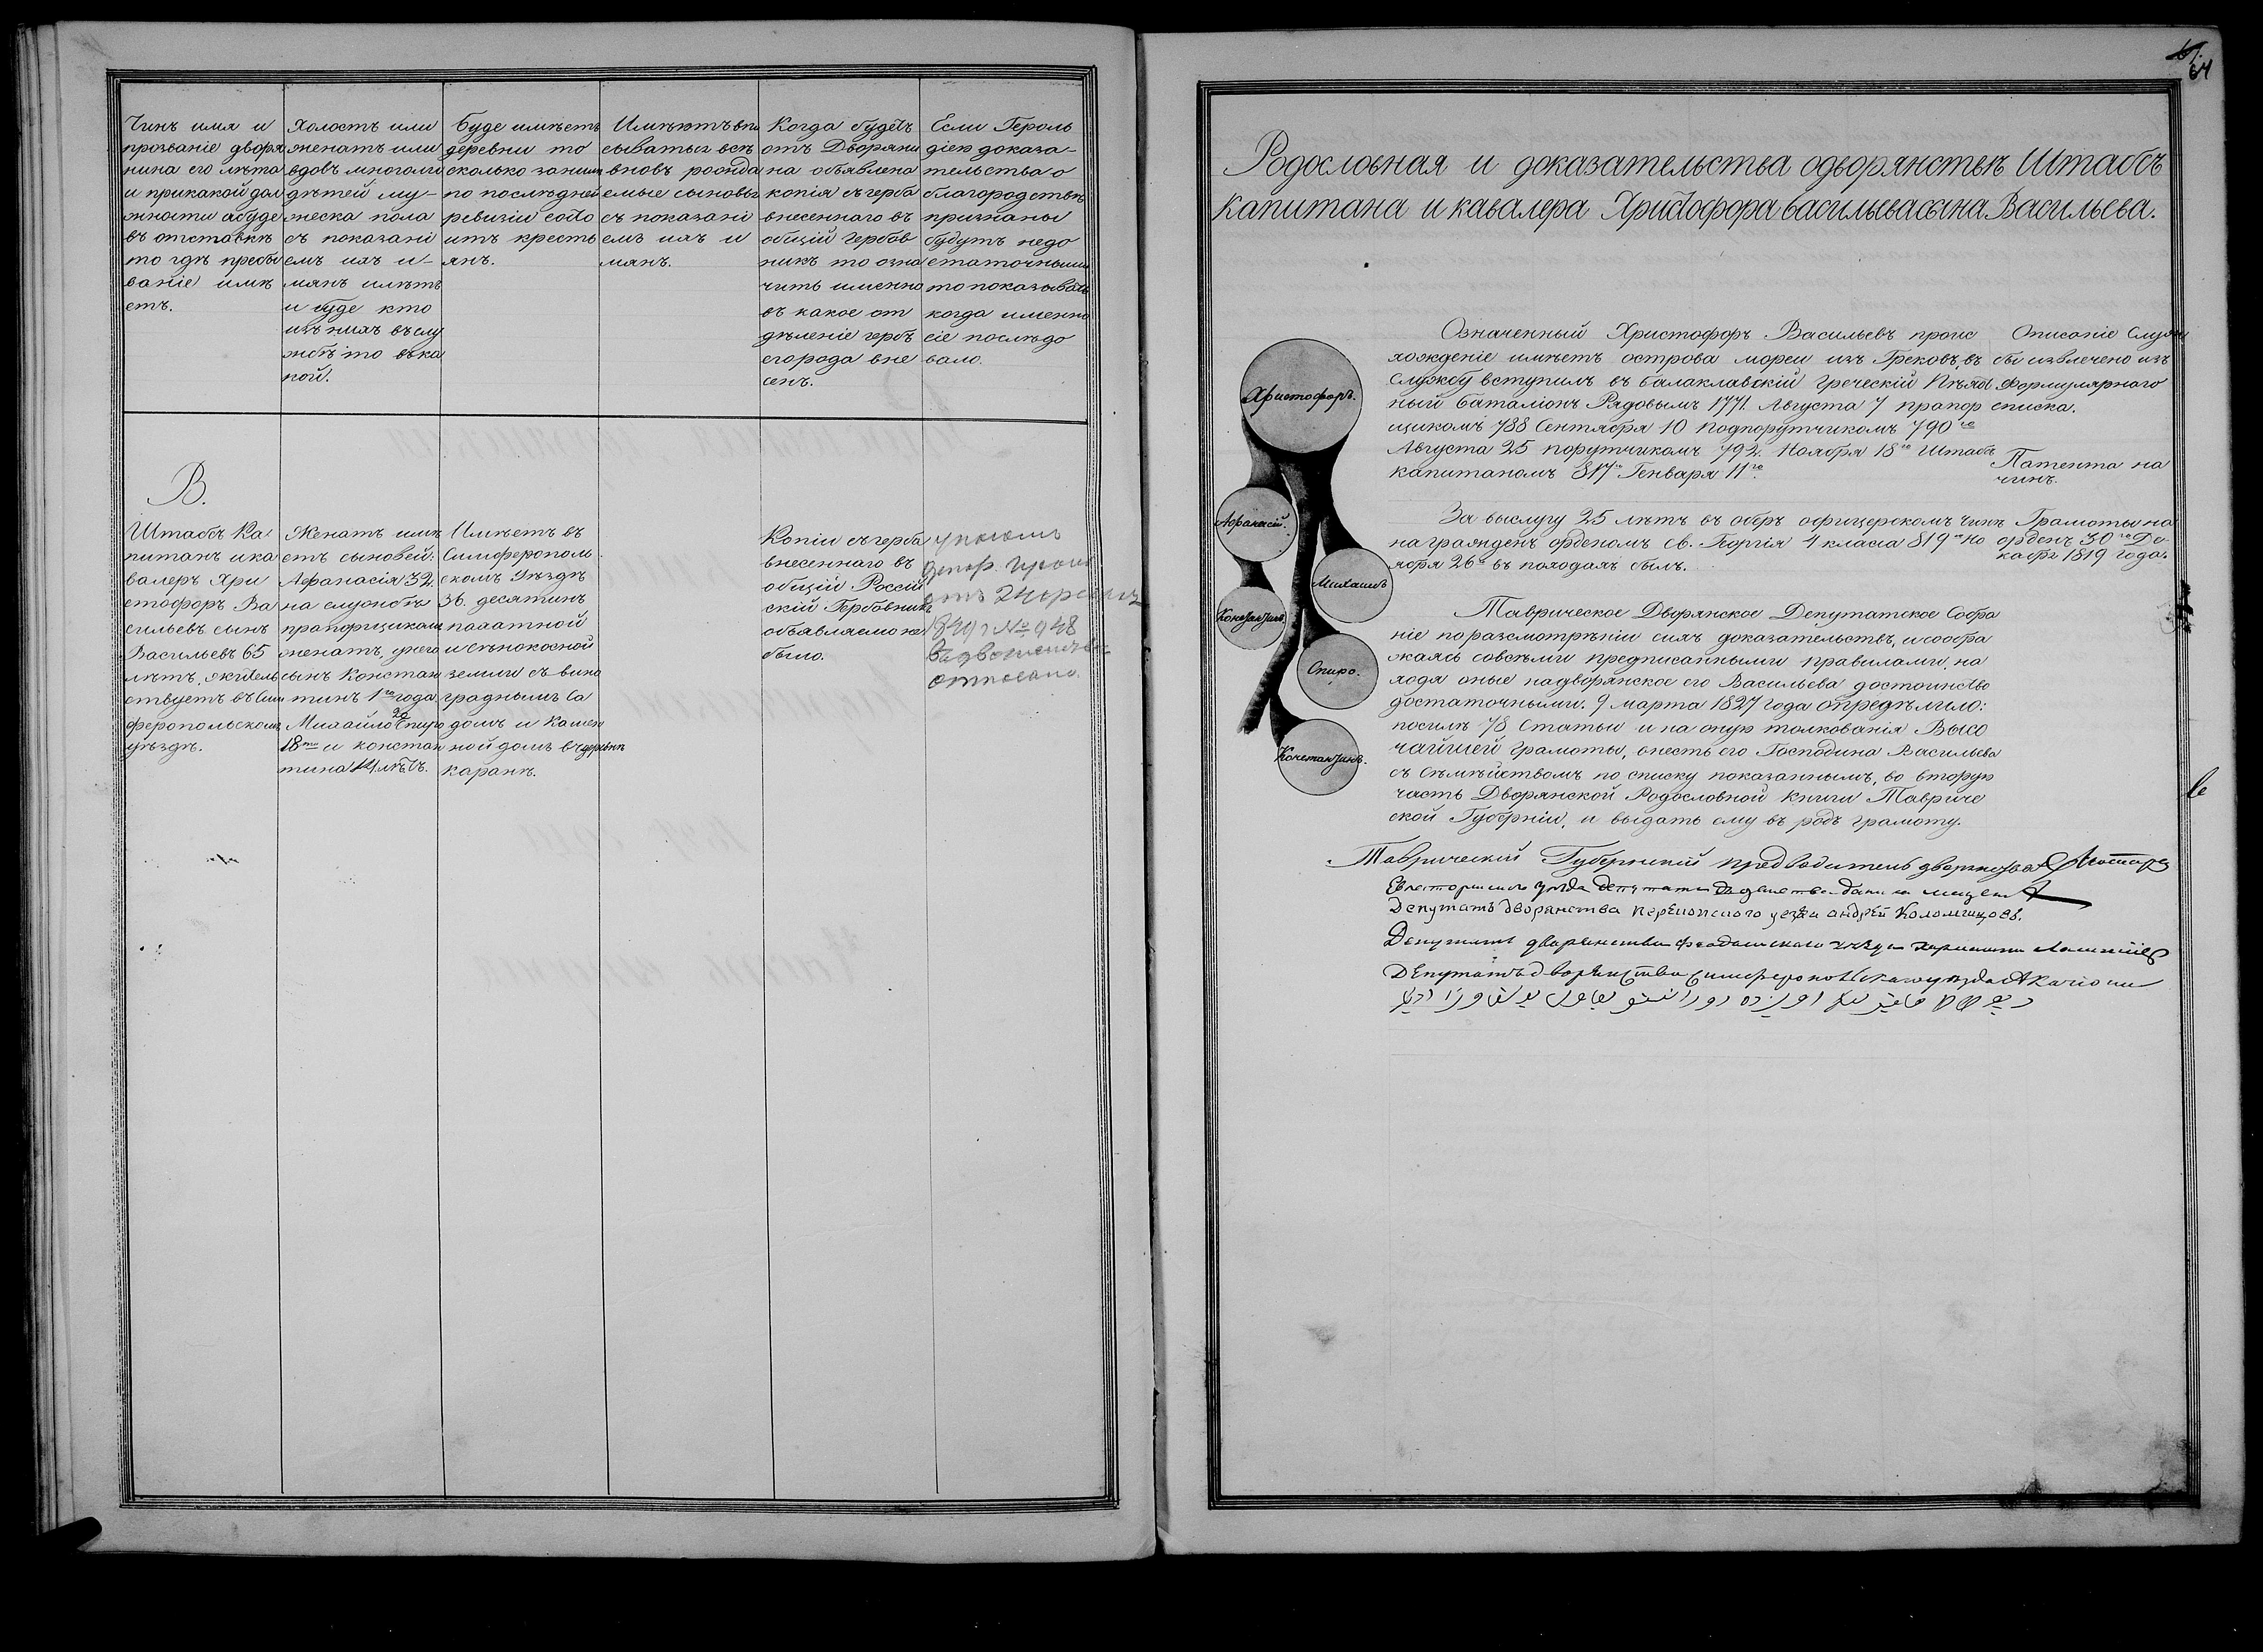 Чинъ имя и
прозваніе дворя
нина его лѣта
и прикакой дол
жности абуде
въ отставкѣ
то гдѣ пребы
ваніе имѣ
етъ.
Холостъ или
женатъ или
вдовъ многоли
дѣтей му-
жеска пола
съ показані
емъ ихъ и-
мянъ лѣтъ
и буде кто
изъ нихъ въслу
жбѣ то въка
кой.
Буде имѣетъ
деревни то
сколько заним
по послѣдней
ревизіи состо
итъ кресть
янъ.
Имѣютъ впи
сыватьи всѣ
вновь рожда
емые сыновья
съ показані
емъ ихъ и
мянъ.
Когда будетъ
отъ Дворяни
на объявлена
копія съгерба
внесеннаго въ
общій гербов
никъ то озна
чить именно
въ какое от
дѣленіе гербъ
егорода вне
сенъ.
Если Героль
діею доказа-
тельства о
благородствѣ
признаны
будутъ недо
статочными
то показывать
когда именно
сіе послѣдо
вало.
В.
Штабсъ Ка
питанъ ика
валеръ Хри
стофоръ Ва
сильевъ сынъ
Васильевъ 65
лѣтъ, жидель
ствуетъ въ Сим
феропольскомъ
уѣздѣ.
Женатъ имѣ
етъ сыновей:
Афанасія 32.
на службѣ
прапорщикомъ
женатъ, унего
сынъ Констан
тинъ 1го года.
Михайло 20 Спиро
18ти и констан
тина 14 лѣтъ.
Имѣетъ въ
Симферополь
скомъ Уѣздѣ
36. десятинъ
пахатной
и сѣнокосной
земли съ вино
граднымъ Са
домъ и Камен
ной домъ въ деревнѣ
каранѣ.
Копіи съгерба
внесеннаго въ
общій Россій
скій Гербовникъ
объявляемо не
было.
1849 г № 948
64
Родословная и доказательства одворянствѣ Штабсъ
капитана и кавалера Христофора васильевасына Васильева.
Христофоръ.
Афанасій.
Михаилъ
Константинъ
Спиро.
Константинъ.
Означенный Христофоръ Васильевъ проис
хожденіе имѣетъ острова мореи изъ Грековъ, въ
службу вступилъ въ балаклавскій греческій Пѣхот
ный баталіонъ Рядовымъ 1771. Августа 7 прапор
щикомъ 788 Сентября 10 Подпорутчикомъ 790го
Августа 25 порутчикомъ 792. Ноября 18го Штабсъ
капитаномъ 817го Генваря 11го.
Описаніе Служ
бы извлечено изъ
Формулярнаго
списка.
Патента на
чинъ.
За выслугу 25 лѣтъ въ оберъ офицерскомъ чинѣ
награжденъ орденомъ св. Георгія 4 класса 819го Но
ября 26го въ походахъ былъ.
Грамоты на
орденъ 30го Де-
кабря 1819 года.
Таврическое Дворянское Депутатское Собра
ніе поразсмотрѣніи сихъ доказательствъ, исообра
жаясь совсѣми предписанными правилами, на
ходя оные надворянское его Васильева достоинство
достаточными. 9 марта 1827 года опредѣлило:
посилѣ 78 Статьи и на оную толкованія Высо
чайшей грамоты, внесть его Господина Васильева
съ Сѣмѣйствомъ по списку показаннымъ, во вторую
часть Дворянской Родословной книги Тавриче
ской Губерніи, и выдать ему въ родъ грамоту.
Таврический Губернский предводитель дворянства
Депутатъ дворянства перекопского уезда андрей Коломийцовъ.
Депутатъ дворянства феодосийского уезда
Депутатъ дворянства симферопольскаго уезда